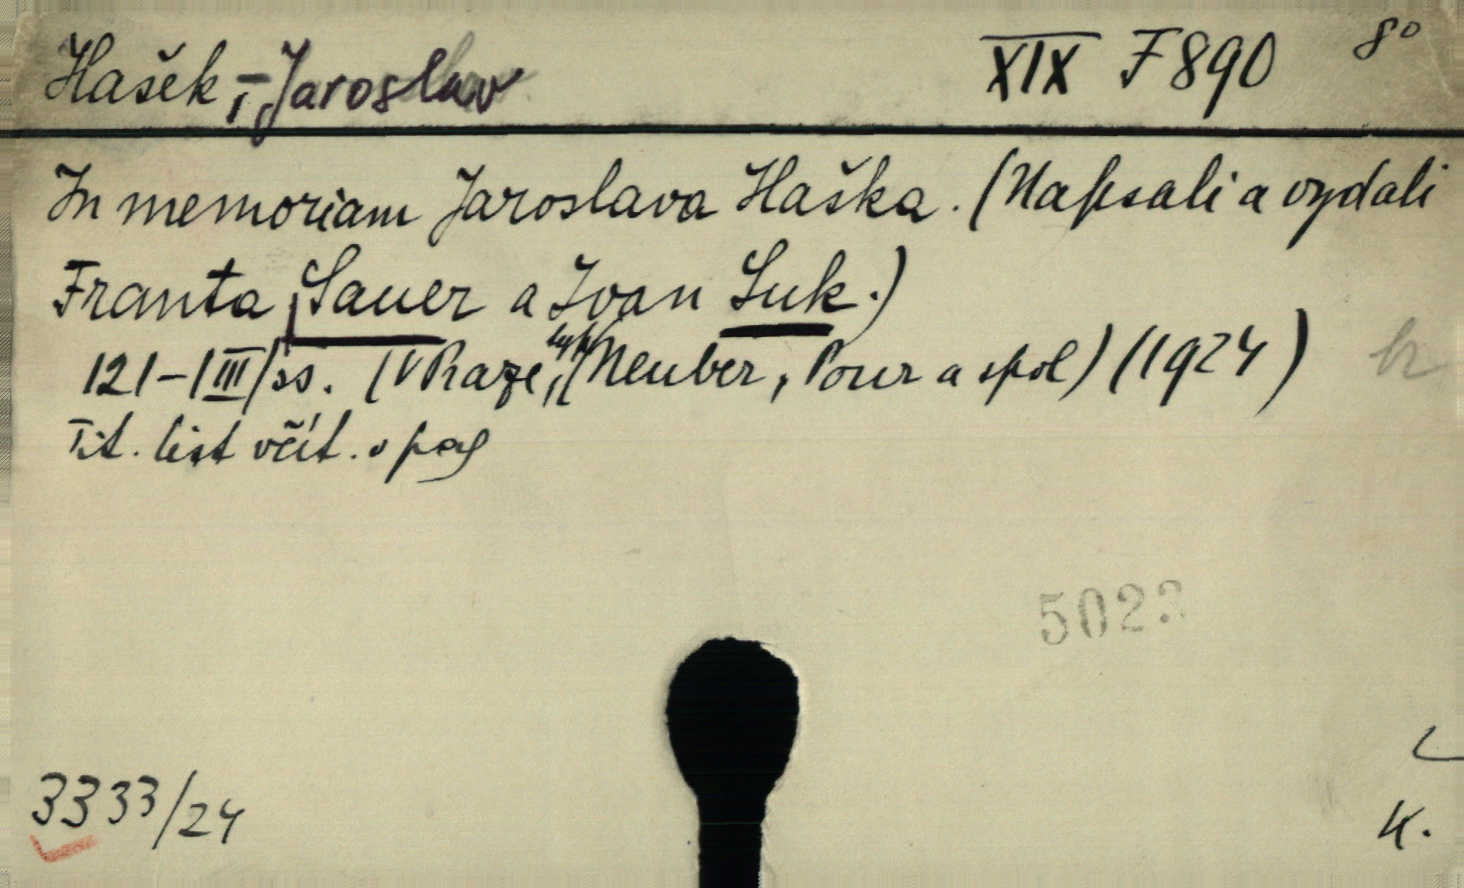 Hašek, Jaroslav XIX F 890 8°
In memoriam Jaroslava Haška. (Napsali a vydali
Franta Sauer a Ivan Suk.)
121-|III| ss. (V Praze, (Neuber, Pour a spol) (1924)
Tit. list včít. v pag
5023
3333/24
K.